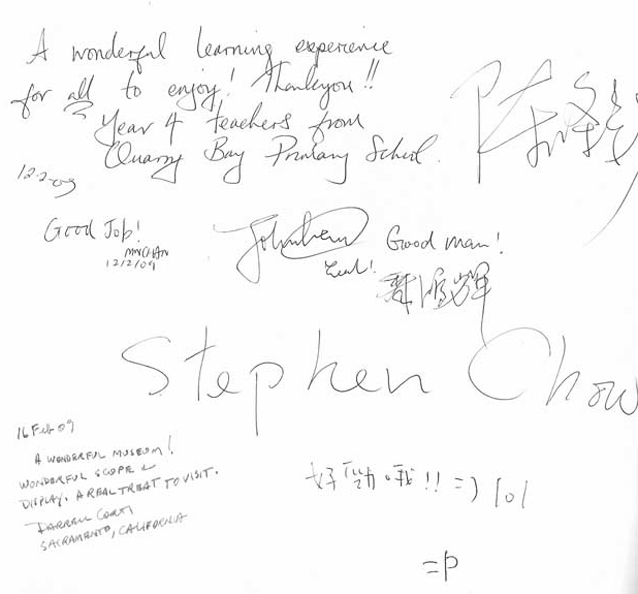 A wonderful learning experience
for all to enjoy! Thankyou!!
Year 4 teachers from
Quarry Bay Primary School.
12.2.09
Good Job!
12/2/09
Good man!
Stephen Chow
16 Feb 09
A WONDERFUL MUSEUM!
WONDERFUL SCOPE &
DISPLAY. A REAL TREAT TO VISIT.
DARRELL CORTI
SACRAMENTO, CALIFORNIA
好勁哦!! =) lol
=p